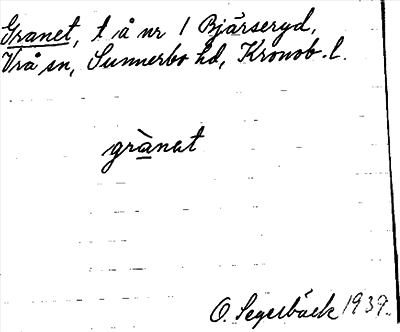 Granet, t å nr 1 Bjärseryd,
Vrå sn, Sunnerbo hd, Kronob. l.
grànat
O. Segerbäck 1939.